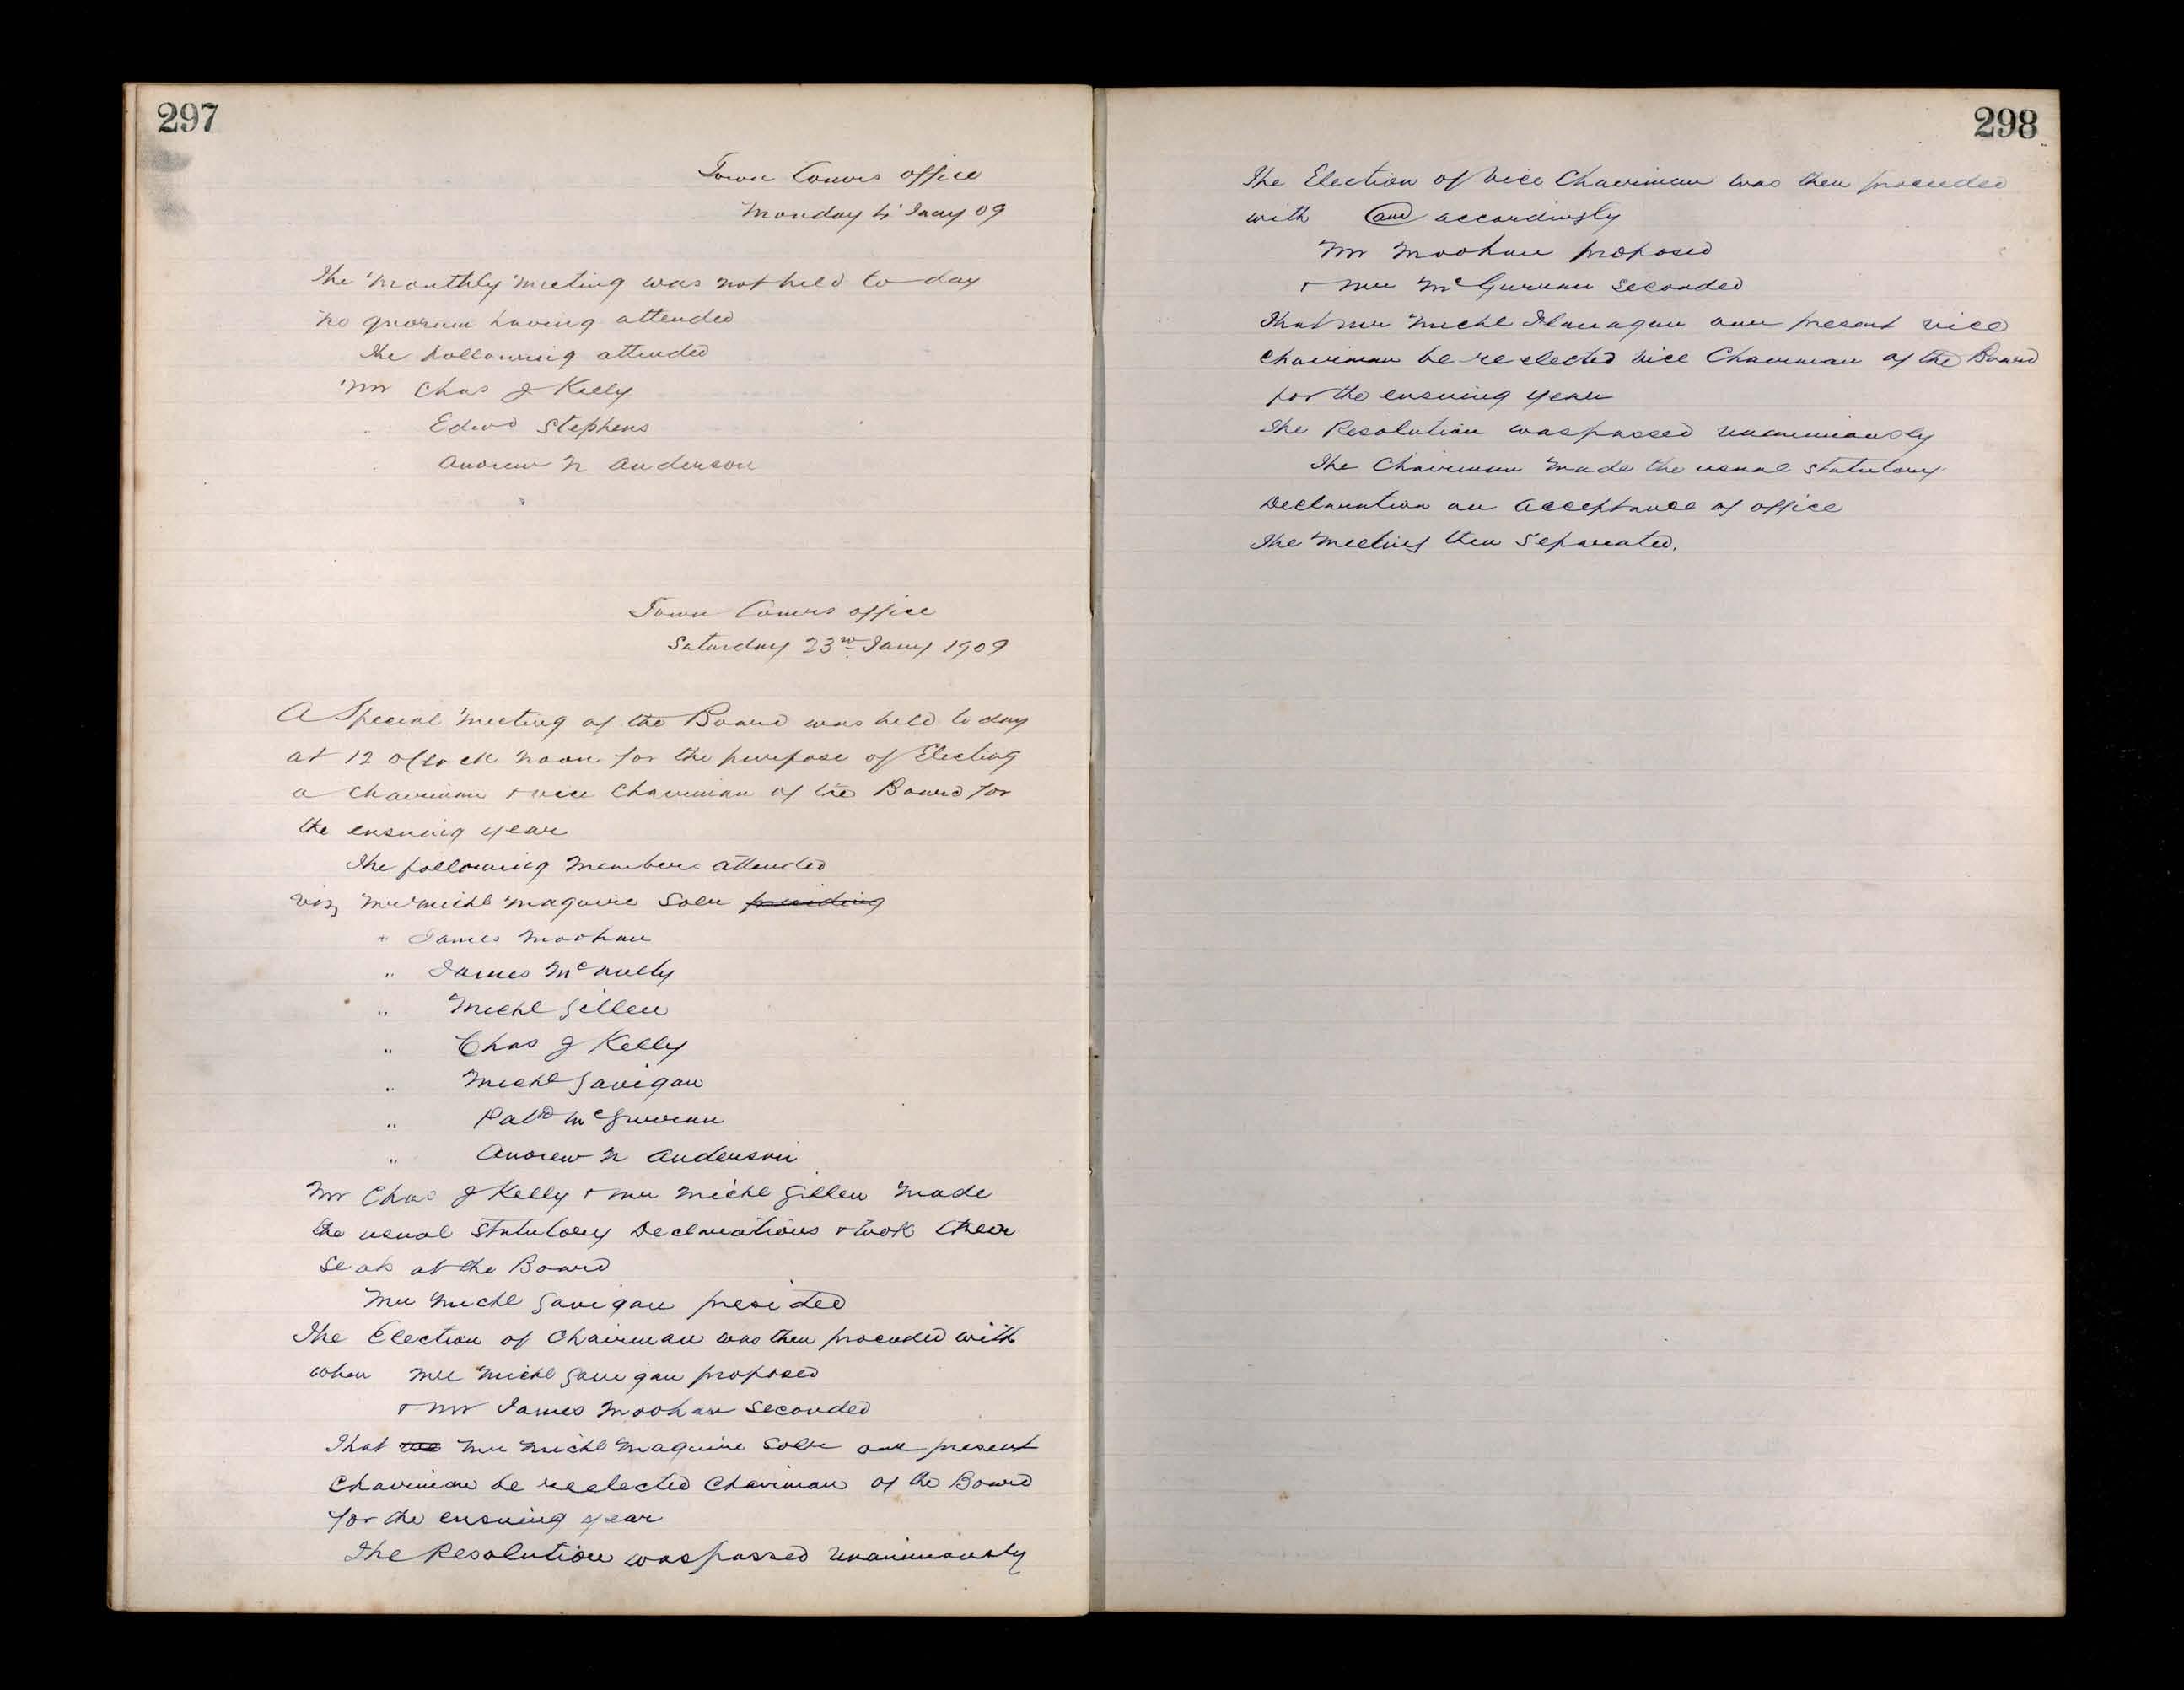 297
Town Comrs office
Monday 4' Jany 09
The Monthly Meeting was not held to day
no quorum having attended
The following attended
Mr Chas J Kelly
Edwd Stephens
Andrew N Anderson
Town Comrs office
Saturday 23rd Jany 1909
A Special Meeting of the Board was held to day
at 12 oClock noon for the purpose of Electing
a Chairman & vice Chairman of the Board for
the ensuing year
The following Members attended
viz, Mr Michl Maguire Solr presiding
" James Moohan
" James McNulty
" Michl Gillen
" Chas J Kelly
" Michl Gavigan
" Patk McGurran
" Andrew N Anderson
Mr Chas J Kelly & Mr Michl Gillen Made
the usual Statutory Declarations & took their
Seats at the Board
Mr Michl Gavigan presided
The Election of Chairman was then proceeded with
when Mr Michl Gavigan proposed
& Mr James Moohan Seconded
That Mr Michl Maguire Solr our present
Chairman be reelected Chairman of the Board
for the ensuing year
The Resolution was passed unanimously
298
The Election of Vice Chairman was then proceeded
with and accordingly
Mr Moohan proposed
& Mr McGurran Seconded
That Mr Michl Flanagan our present vice
Chairman be re elected vice Chairman of the Board
for the ensuing year
The Resolution was passed unanimously
The Chairman Made the usual Statutory
Declaration on acceptance of office
The Meeting then Separated.